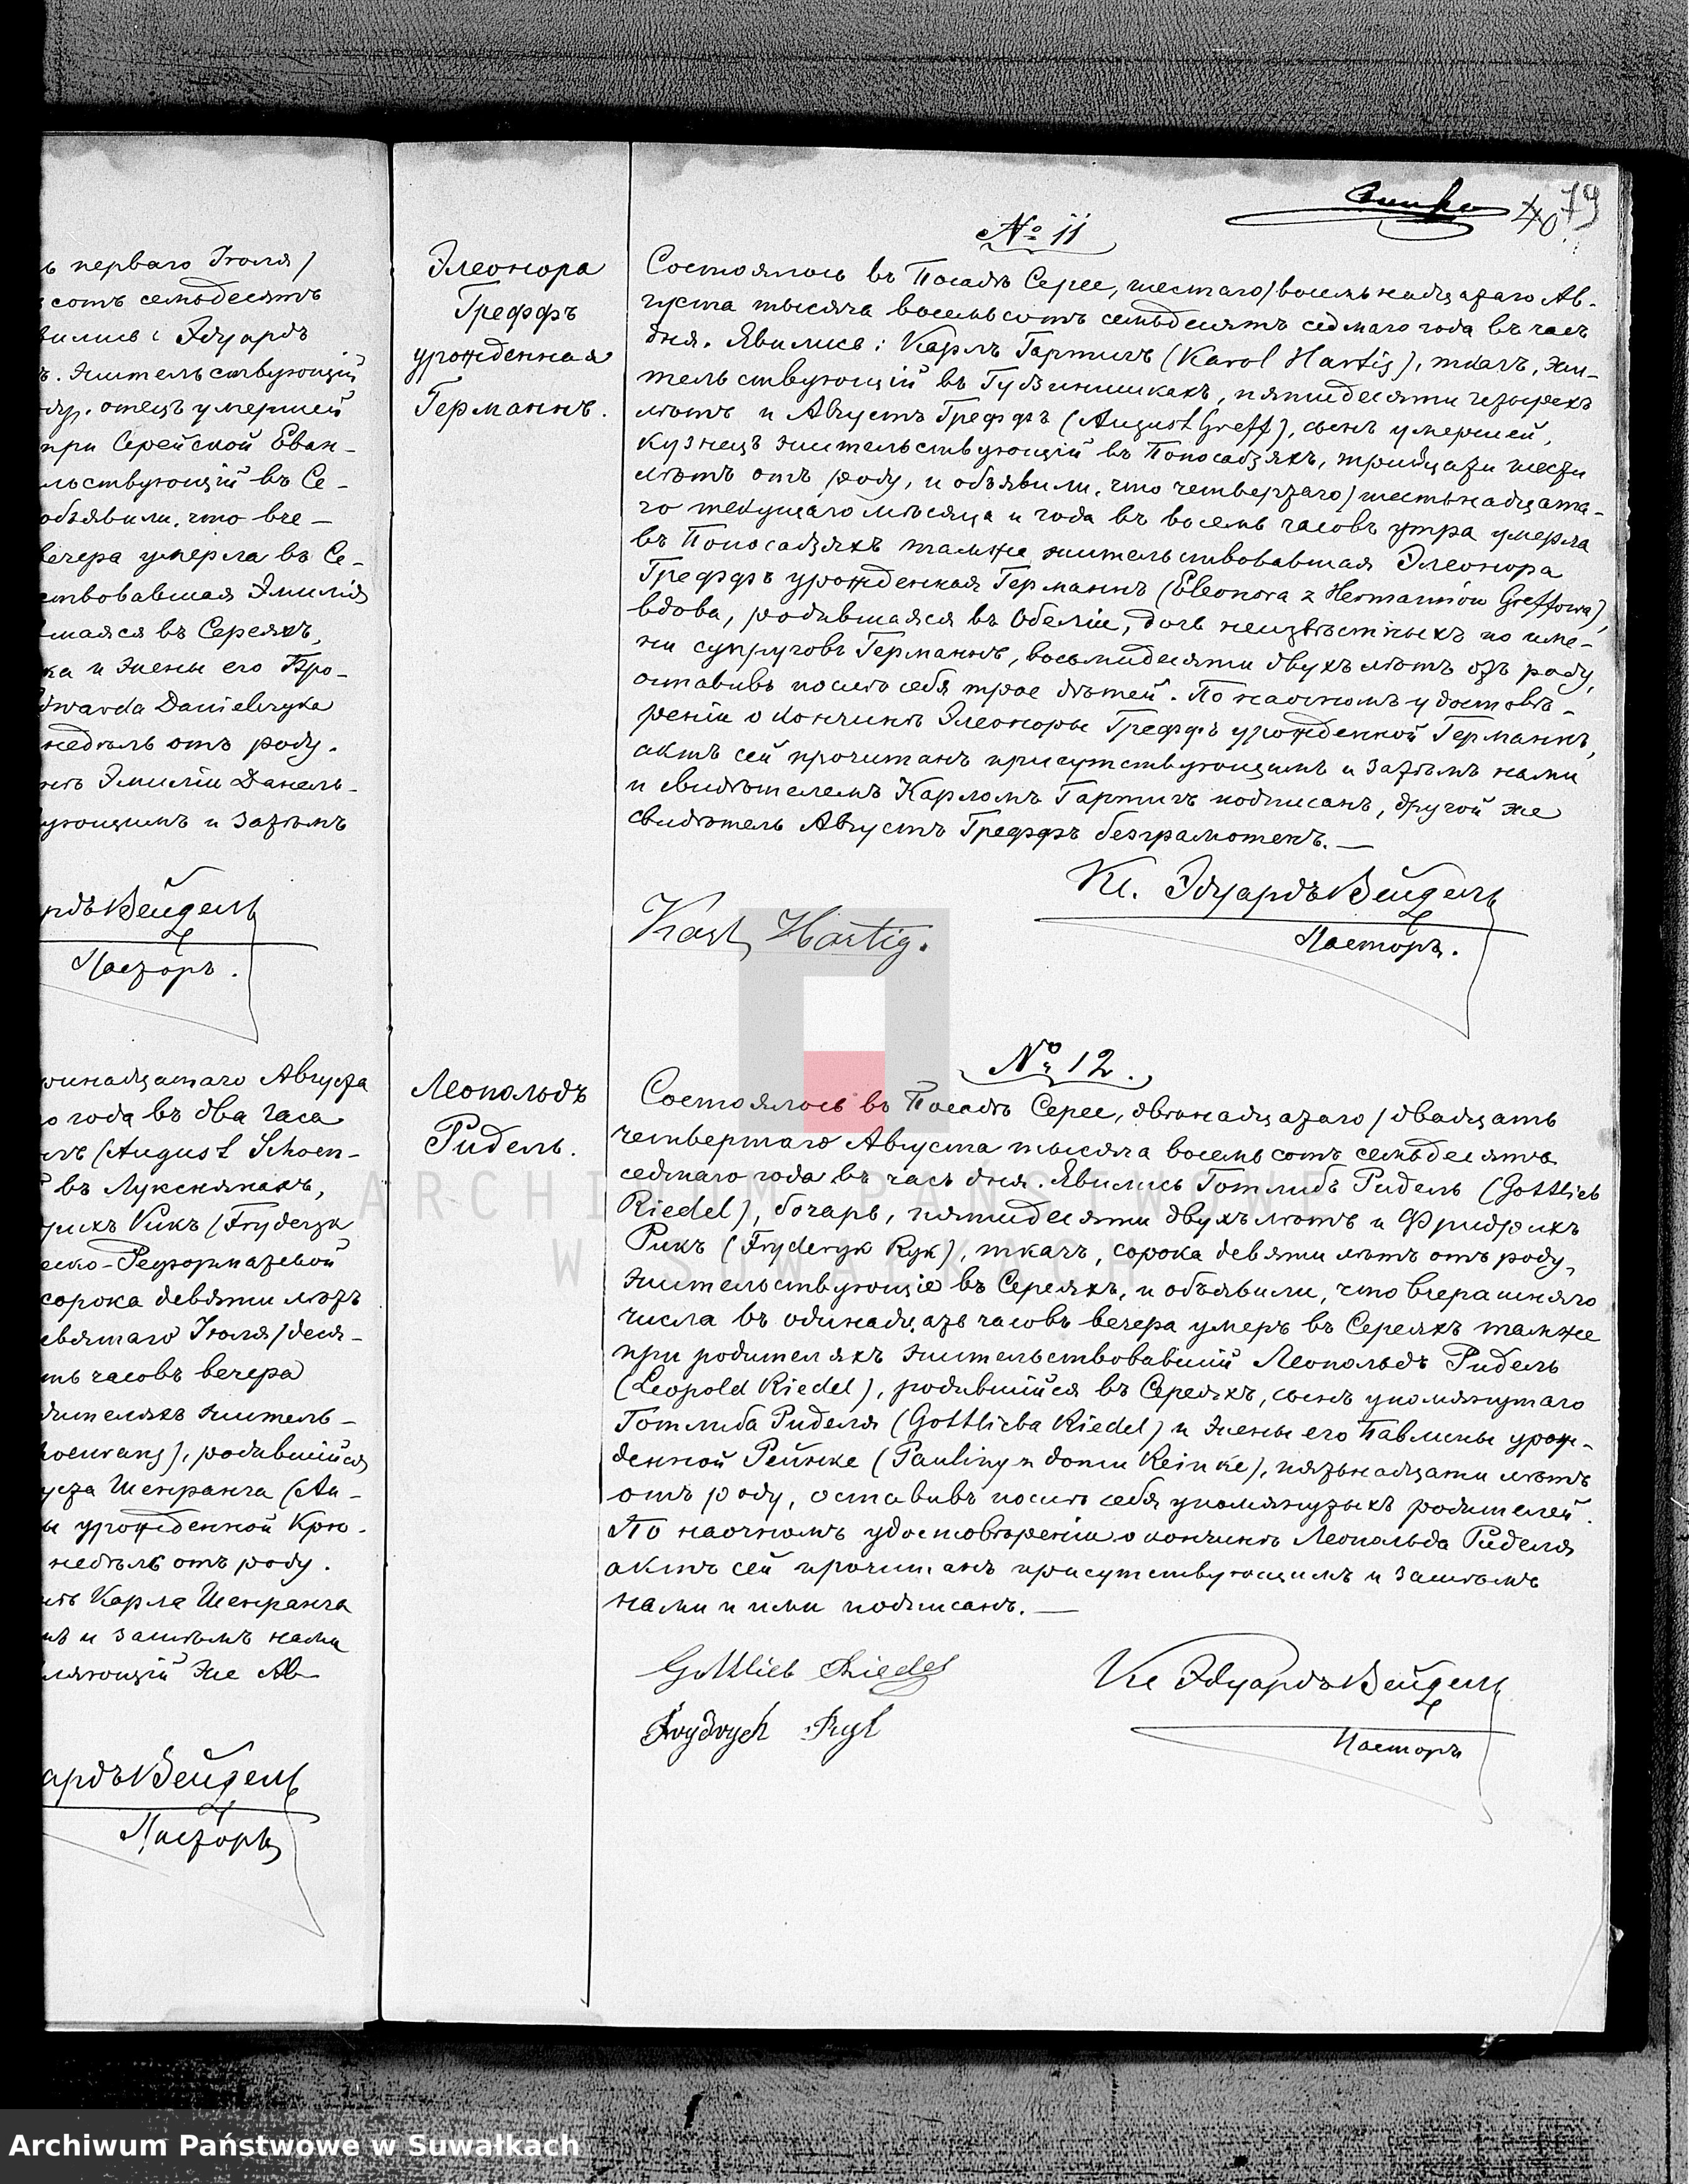 79
40
№ 11
Элеонора
Греффъ
урожденная
Германнъ.
Состоялось въ Посадѣ Серее, шестаго/восемьнадцатаго Ав-
густа тысяча восемьсотъ семьдесятъ седмаго года въ часъ
дня. Явились: Карлъ Гартигъ (Karol Hartig), ткачъ, жи-
тельствующій въ Гудзинишкахъ, пятидесяти четырехъ
лѣтъ и Августъ Греффъ (August Greff), сынъ умершей,
кузнецъ жительствующій въ Попосадзяхъ, тридцати шести
лѣтъ отъ роду, и объявили, что четвертаго/шестьнадцата-
го текущаго мѣсяца и года въ восемь часовъ утра умерла
въ Попосадзяхъ тамже жительствовавшая Элеонора
Греффъ урожденная Германнъ (Eleonora z Hermannów Greffowa),
вдова, родившаяся въ Обеліи, дочь неизвѣстныхъ по име-
ни супруговъ Германнъ, восьмидесяти двухъ лѣтъ отъ роду,
оставивъ послѣ себя трое дѣтей. По наочномъ удостовѣ-
реніи о кончинѣ Элеоноры Греффъ урожденной Германнъ,
актъ сей прочитанъ присутствующимъ и затѣмъ нами
и свидѣтелемъ Карломъ Гартигъ подписанъ, другой же
свидѣтель Августъ Греффъ безграмотенъ. —
Кс. Эдуардъ Вейдель
Пасторъ.
Karl Hartig.
№ 12.
Леопольдъ
Ридель.
Состоялось въ Посадѣ Серее, двѣнадцатаго/двадцать
четвертаго Августа тысяча восемьсотъ семьдесятъ
седмаго года въ часъ дня. Явились Готлибъ Ридель (Gottlieb
Riedel), бочаръ, пятидесяти двухъ лѣтъ и Фридрихъ
Рикъ (Fryderyk Ryk), ткачъ, сорока девяти лѣтъ отъ роду,
жительствующіе въ Сереяхъ, и объявили, что вчерашняго
числа въ одинадцать часовъ вечера умеръ въ Сереяхъ тамже
при родителяхъ жительствовавшій Леопольдъ Ридель
(Leopold Riedel), родившійся въ Сереяхъ, сынъ упомянутаго
Готлиба Риделя (Gottlieba Riedel) и жены его Павлины урож-
денной Рейнке (Pauliny z domu Reinke), пятьнадцати лѣтъ
отъ роду, оставивъ послѣ себя упомянутыхъ родителей.
По наочномъ удостовѣреніи о кончинѣ Леопольда Риделя
актъ сей прочитанъ присутствующимъ и затѣмъ
нами и ими подписанъ. —
Gottlieb Riedel
Кс Эдуардъ Вейдель
Пасторъ
ь перваго Іюля/
сотъ семьдесятъ
вились: Эдуардъ
ъ. жительствующій
отецъ умершей
при Серейской Еван-
льствующій въ Се-
объявили, что вче-
вечера умерла въ Се-
ствовавшая Эмилія
вшаяся въ Сереяхъ,
ка и жены его Бро-
dwarda Danielczyka
недѣль отъ роду.
нѣ Эмиліи Данель-
ующимъ и затѣмъ
рдъ Вейдель
Пасторъ.
ринадцатаго Августа
о года въ два часа
(August Schoen-
въ Луксненахъ,
рихъ Рикъ (Fryderyk
ско-Реформатской
сорока девяти лѣтъ
евятаго Іюля/деся-
ть часовъ вечера
дителяхъ житель-
родившійся
уста Шенранга (Au-
ы урожденной Крю-
недѣль отъ роду.
нѣ Карла Шенранга
мъ и затѣмъ нами
вляющій же Ав-
ардъ Вейдель
Пасторъ
ARCHIWUM PAŃSTWOWE
W SUWAŁKACH
Archiwum Państwowe w Suwałkach